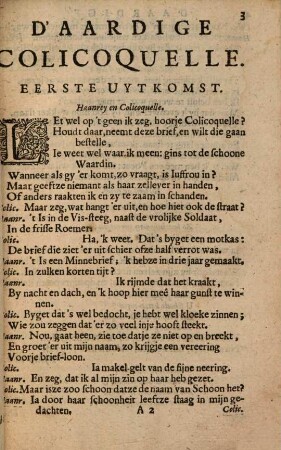 3
D'AARDIGE
COLICOQUELLE.
EERSTE UYTKOMST.
Haanrey en Colicoquelle.
LEt wel op 't geen ik zeg, hoorje Colicoquelle?
Houdt daar, neemt deze brief, en wilt die gaan
bestelle,
Ie weet wel waar ik meen: gins tot de schoone
Waardin.
Wanneer als gy 'er komt, zo vraagt, is Iuffrou in?
Maar geeftze niemant als haar zellever in handen,
Of anders raakten ik en zy te zaam in schanden.
Colic. Maar zeg, wat hangt 'er uit, en hoe hiet ook de straat?
Haanr. 't Is in de Vis-steeg, naast de vrolijke Soldaat,
In de frisse Roemer:
Colic. Ha, 'k weet. Dat 's byget een motkas:
De brief die ziet 'er uit schier ofze half verrot was.
Haanr. 't Is een Minnebrief; 'k hebze in drie jaar gemaakt.
Colic. In zulken korten tijt?
Haanr. Ik rijmde dat het kraakt,
By nacht en dach, en 'k hoop hier meê haar gunst te win-
nen.
Colic. Byget dat 's wel bedocht, je hebt wel kloeke zinnen;
Wie zou zeggen dat 'er zo veel in je hooft steekt.
Haanr. Nou, gaat heen, zie toe datje ze niet op en breekt,
En groet 'er uit mijn naam, zo krijgje een vereering
Voorje brief-loon.
Colic. Ia makel-gelt van de fijne neering.
Haanr. En zeg, dat ik al mijn zin op haar heb gezet.
Colic. Maar isze zoo schoon datze de naam van Schoon het?
Haanr. Ja door haar schoonheit leeftze staag in mijn ge-
dachten, A 2 Colic.